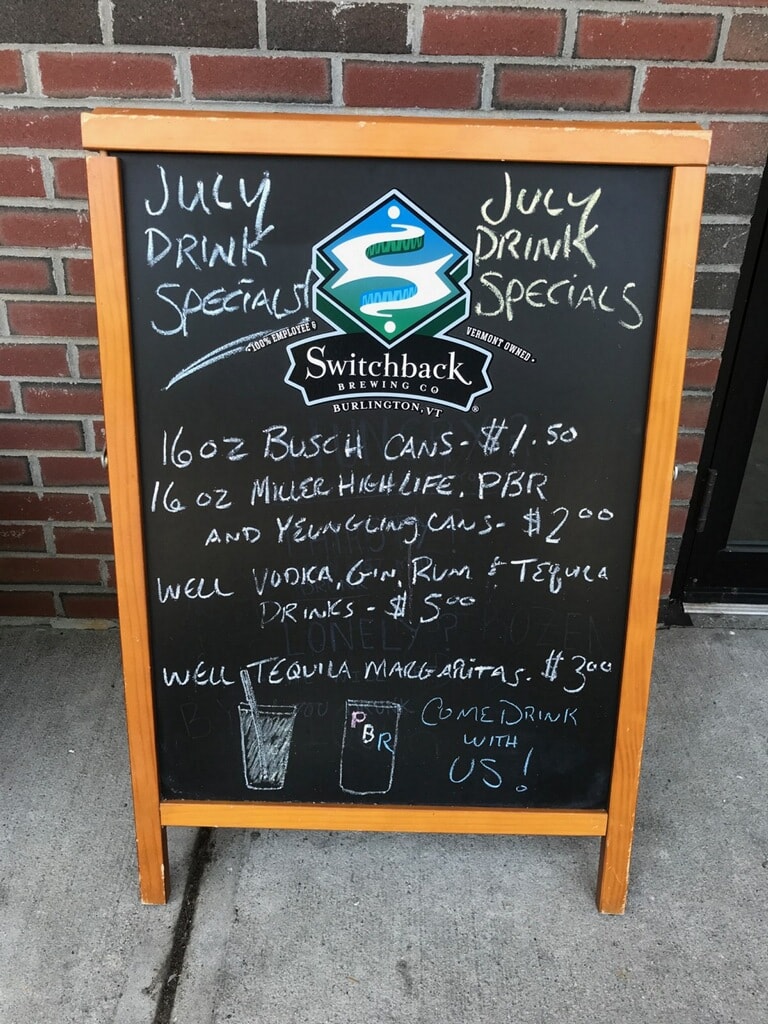 JULY
DRINK
SPECIALS!
JULY
DRINK
SPECIALS
• 100% EMPLOYEE &
VERMONT OWNED •
Switchback
BREWING CO
BURLINGTON, VT
®
16 OZ BUSCH CANS - $1.50
16 OZ MILLER HIGH LIFE, PBR
AND YEUNGLING CANS - $2.00
WELL VODKA, GIN, RUM & TEQUILA
DRINKS - $5.00
LONELY?
WELL TEQUILA MARGARITAS. $3.00
PBR
COME DRINK
WITH
US!